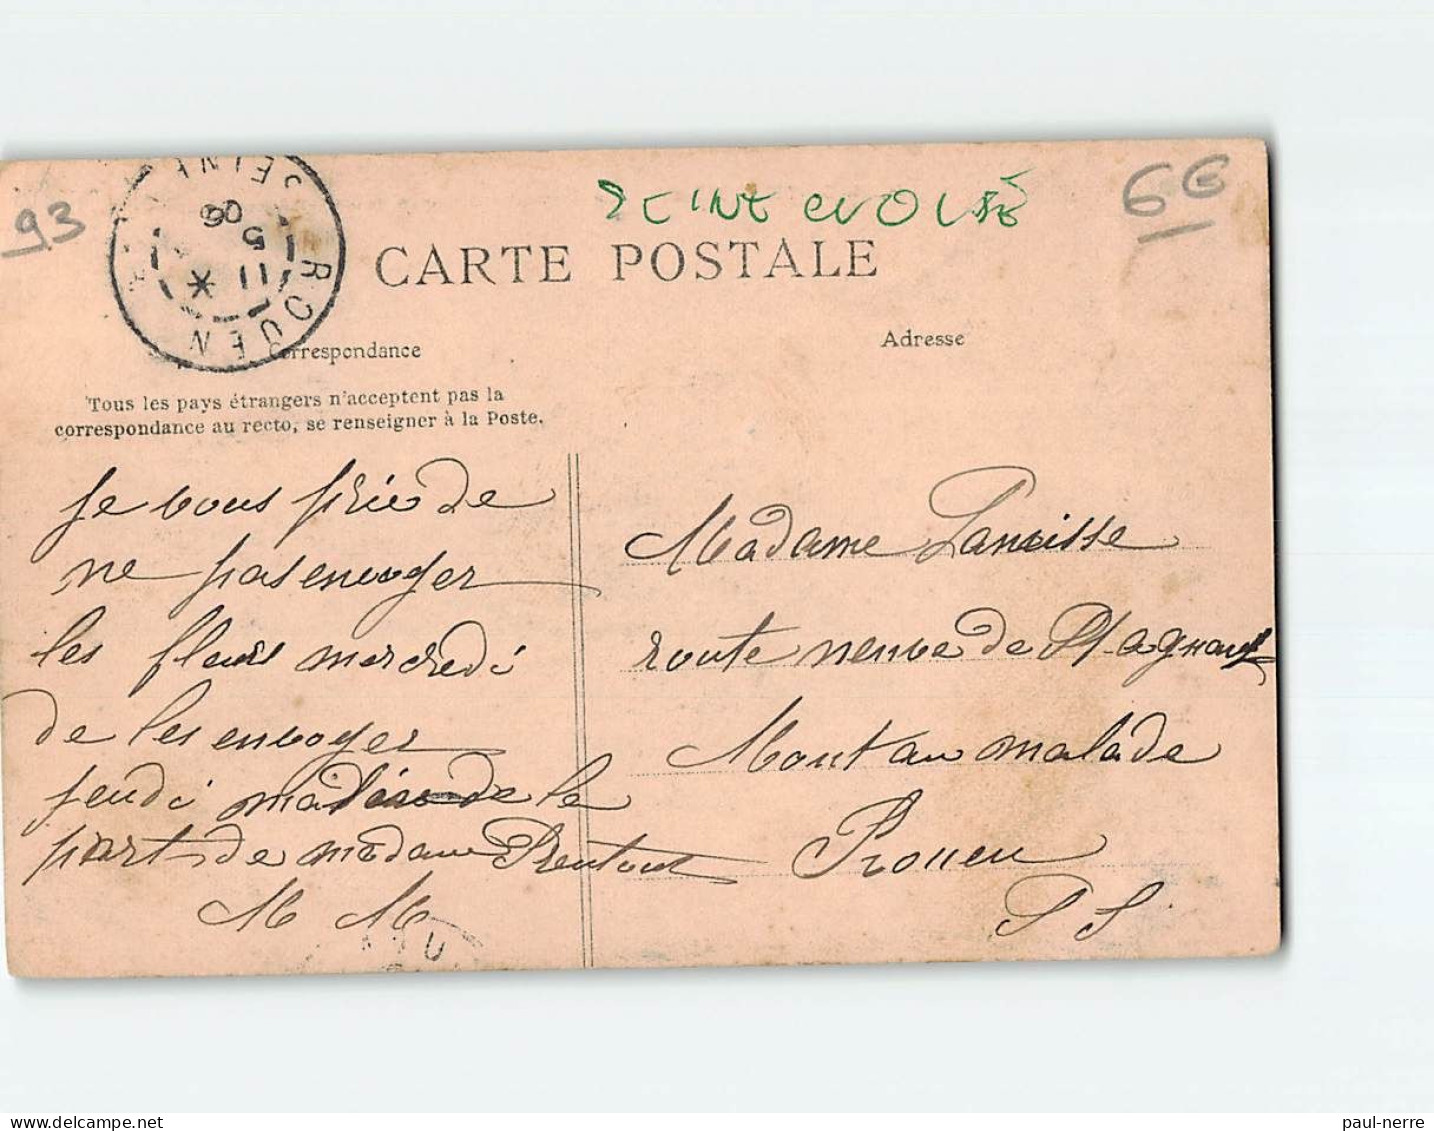 93
ROUEN
SEINE
11
5
06
66
CARTE POSTALE
Correspondance
Adresse
Tous les pays étrangers n'acceptent pas la
correspondance au recto, se renseigner à la Poste.
je vous prie de
ne pas envoyer
les fleurs mercredi
de les envoyer
jeudi de la
part de madame Prentout
M M
Madame
route neuve de
Mont au malade
Rouen
S I
paul-nerre
delcampe.net